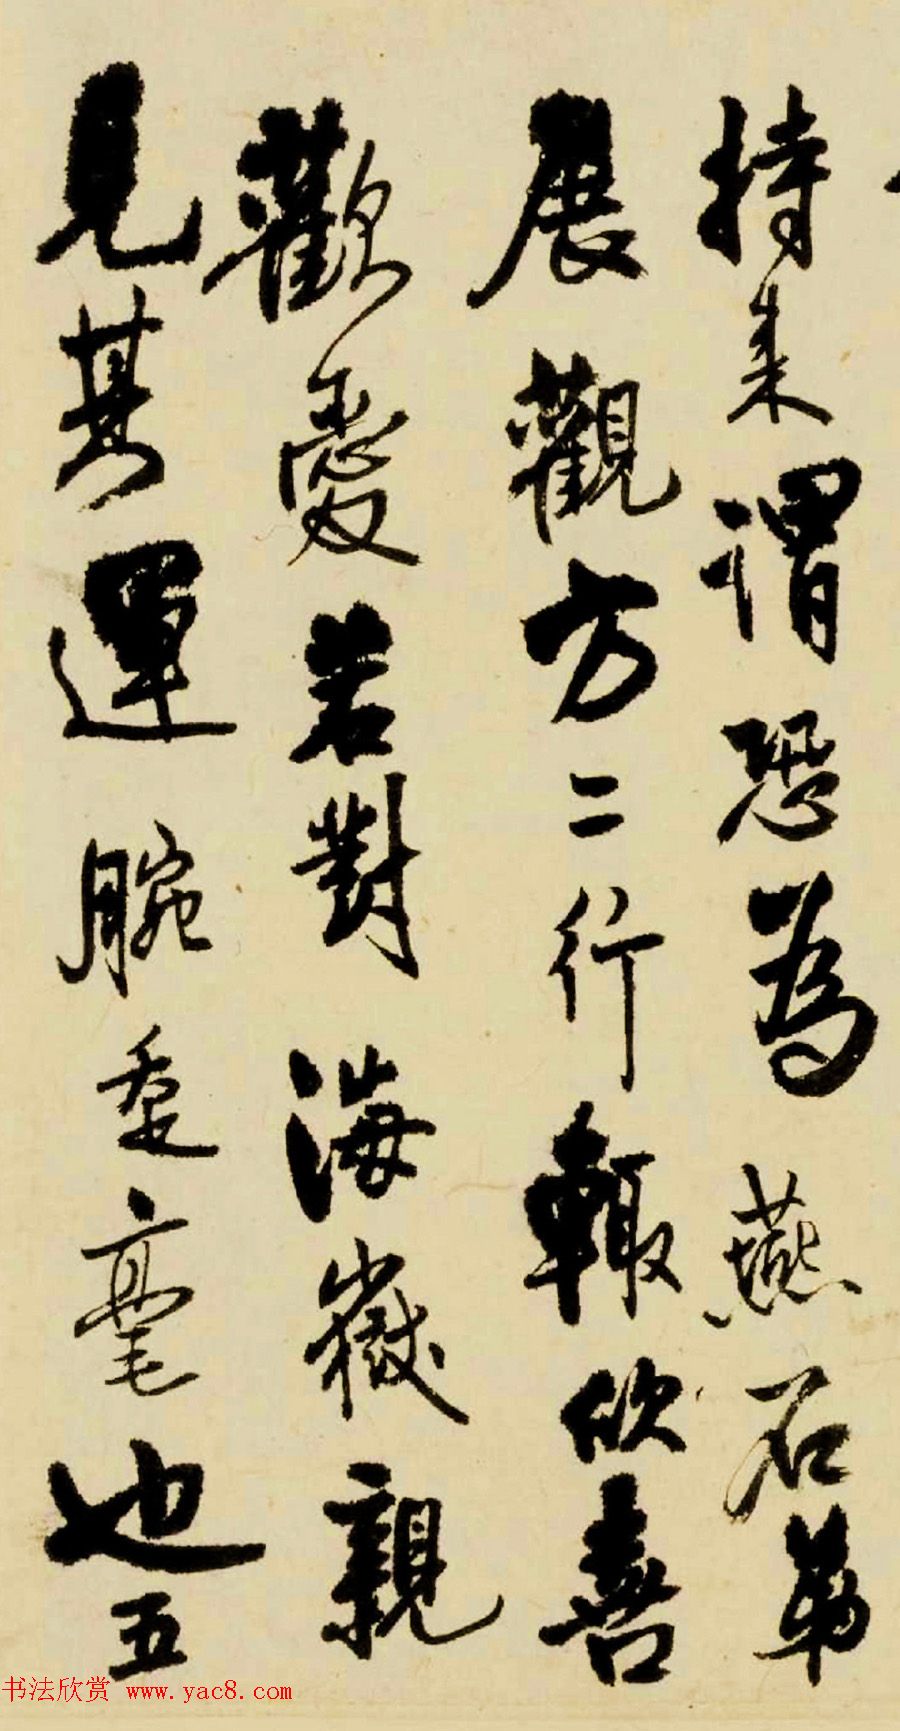 持来謂恐為燕石弟
展觀方二行輙欣喜
歡愛若對海嶽親
見其運腕垂毫也五
书法欣赏 www.yac8.com